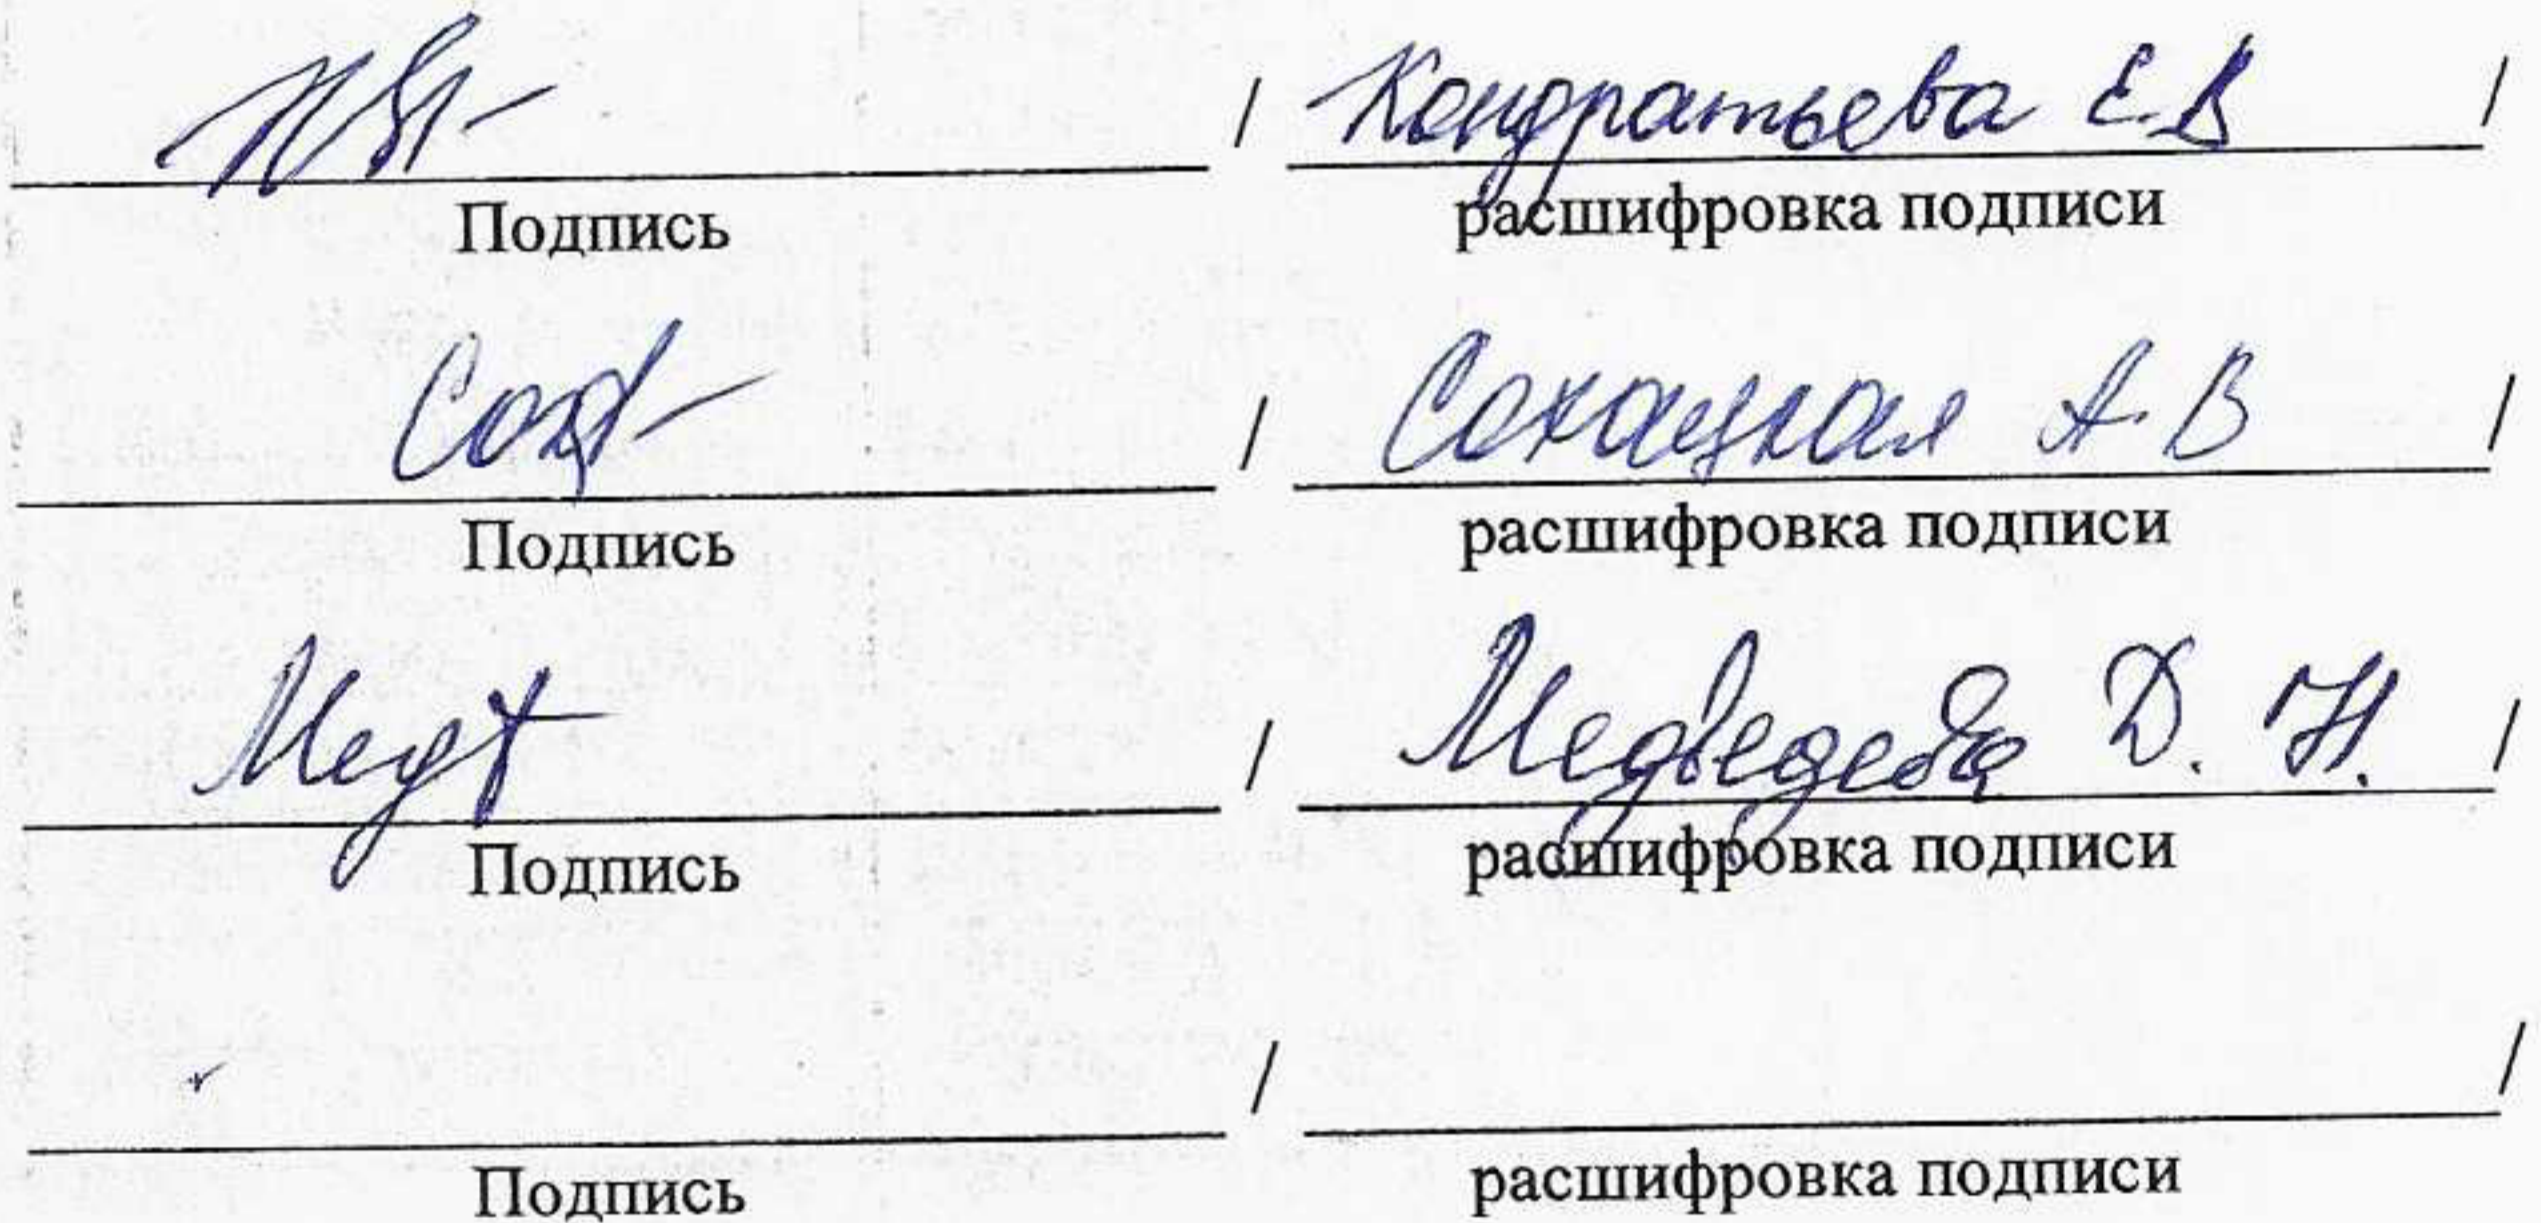 / Кондратьева Е.В /
Подпись расшифровка подписи
/ Сохацкая А.В /
Подпись расшифровка подписи
/ Медведева Д. Н. /
Подпись расшифровка подписи
/ /
Подпись расшифровка подписи